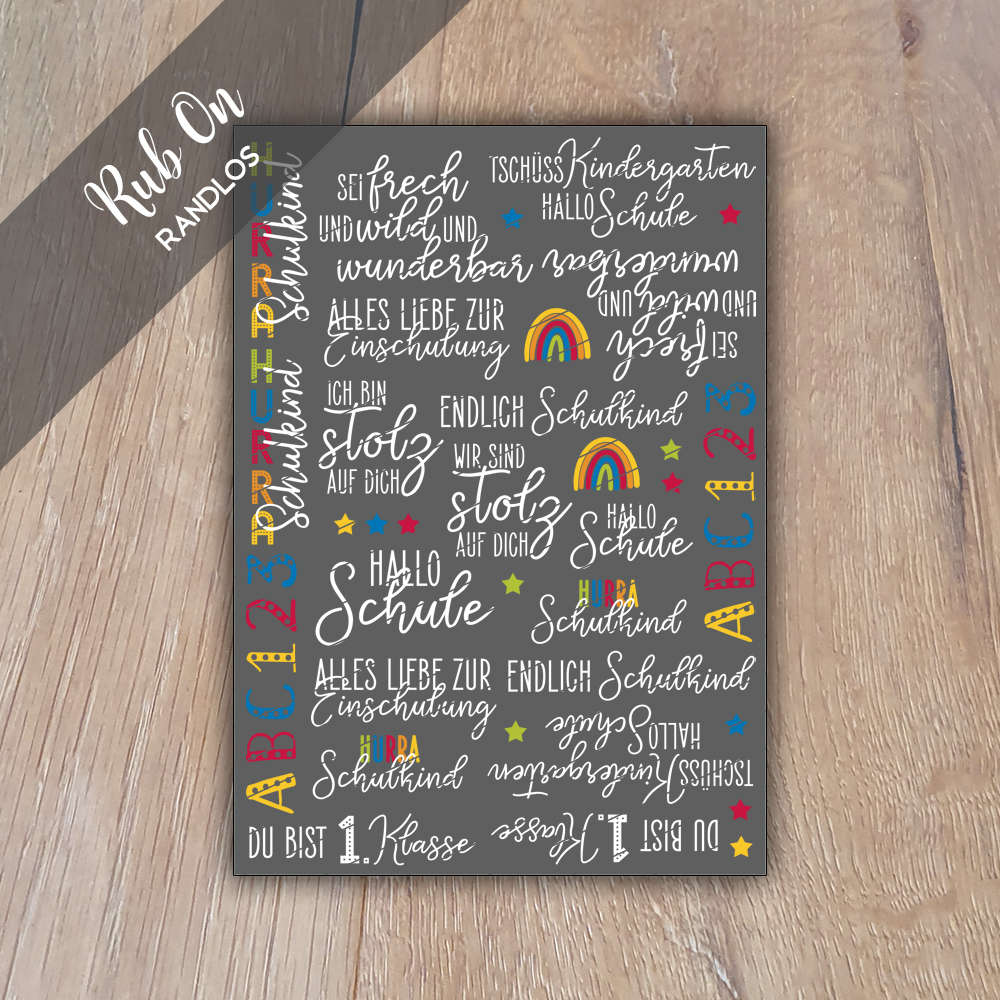 Rub On
RANDLOS
HURRA Schulkind
HURRA Schulkind
ABC 123
SEI frech
UND wild UND
wunderbar
TSCHÜSS Kindergarten
HALLO Schule
SEI frech
UND wild UND
wunderbar
ALLES LIEBE ZUR
Einschulung
ICH BIN
stolz
AUF DICH
ENDLICH Schulkind
WIR SIND
stolz
AUF DICH
HALLO
Schule
ABC 123
HALLO
Schule
HURRA
Schulkind
ALLES LIEBE ZUR
Einschulung
ENDLICH Schulkind
HURRA
Schulkind
TSCHÜSS Kindergarten
HALLO Schule
DU BIST 1. Klasse
DU BIST 1. Klasse